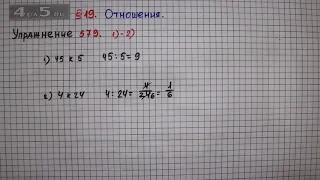 §19. Отношения.
Упражнение 579. 1)-2)
1) 45 к 5 45:5=9
2) 4 к 24 4:24= 4/24 6 = 1/6